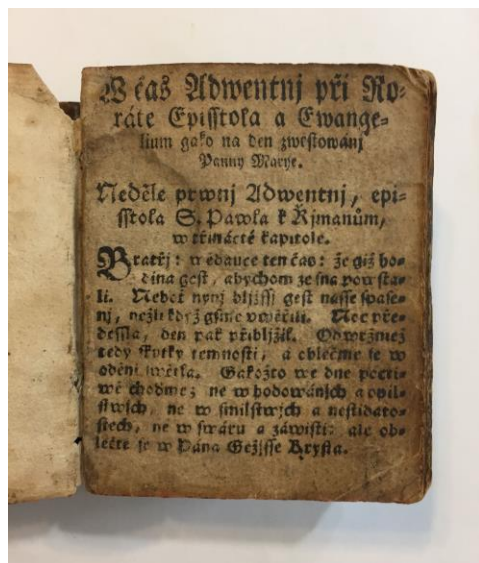 W čas Adwentnj při Ro-
ráte Episstola a Ewange-
lium gako na den zwěstowánj
Panny Marye.
Neděle prwnj Adwentnj, epi-
sstola S. Pawla k Ržjmanům,
w třinácté kapitole.
Bratřj: wědauce ten čas: že giž ho-
dina gest, abychom ze sna powsta-
li. Neboť nynj bljžssj gest nasse spase-
nj, nežli když gsme vwěřili. Noc pře-
dessla, den pak přibljžil. Odwržmež
tedy skutky temnosti, a oblečme se w
oděnj swětla. Gakožto we dne pocti-
wě choďmež ne w hodowánjch a opil-
stwjch, ne w smilstwjch a nestidato-
stech, ne w swáru a záwisti: ale ob-
lečte se w Pána Gežjsse Krysta.